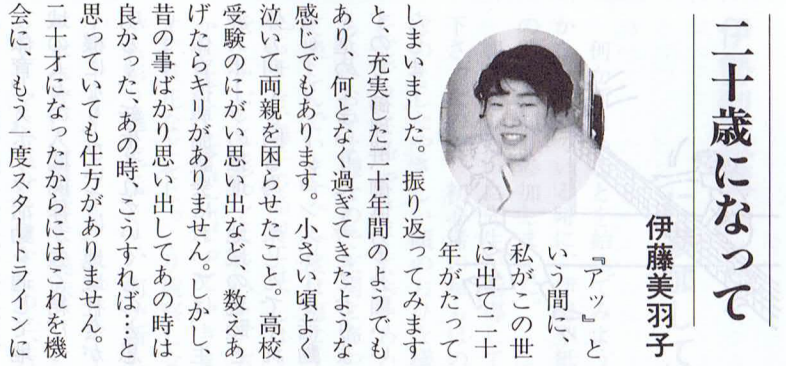 二十歳になって
伊藤美羽子
『アッ』と
いう間に、
私がこの世
に出て二十
年がたって
しまいました。振り返ってみます
と、充実した二十年間のようでも
あり、何となく過ぎてきたような
感じでもあります。小さい頃よく
泣いて両親を困らせたこと。高校
受験のにがい思い出など、数えあ
げたらキリがありません。しかし、
昔の事ばかり思い出してあの時は
良かった、あの時、こうすれば…と
思っていても仕方がありません。
二十才になったからにはこれを機
会に、もう一度スタートラインに